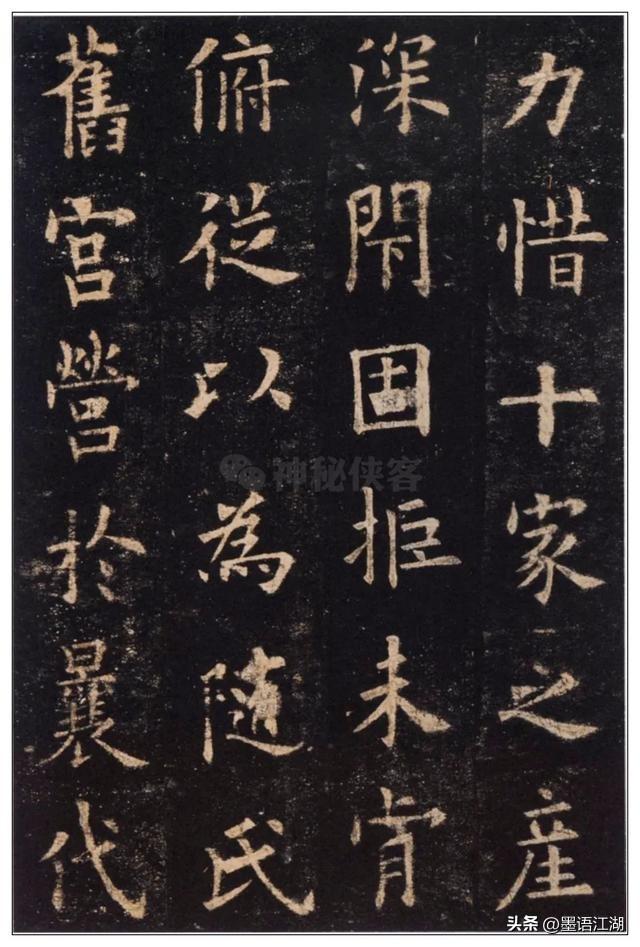 力惜十家之産
深閇固拒未肯
俯從以為隨氏
舊宮營於曩代
神秘侠客
头条 @墨语江湖